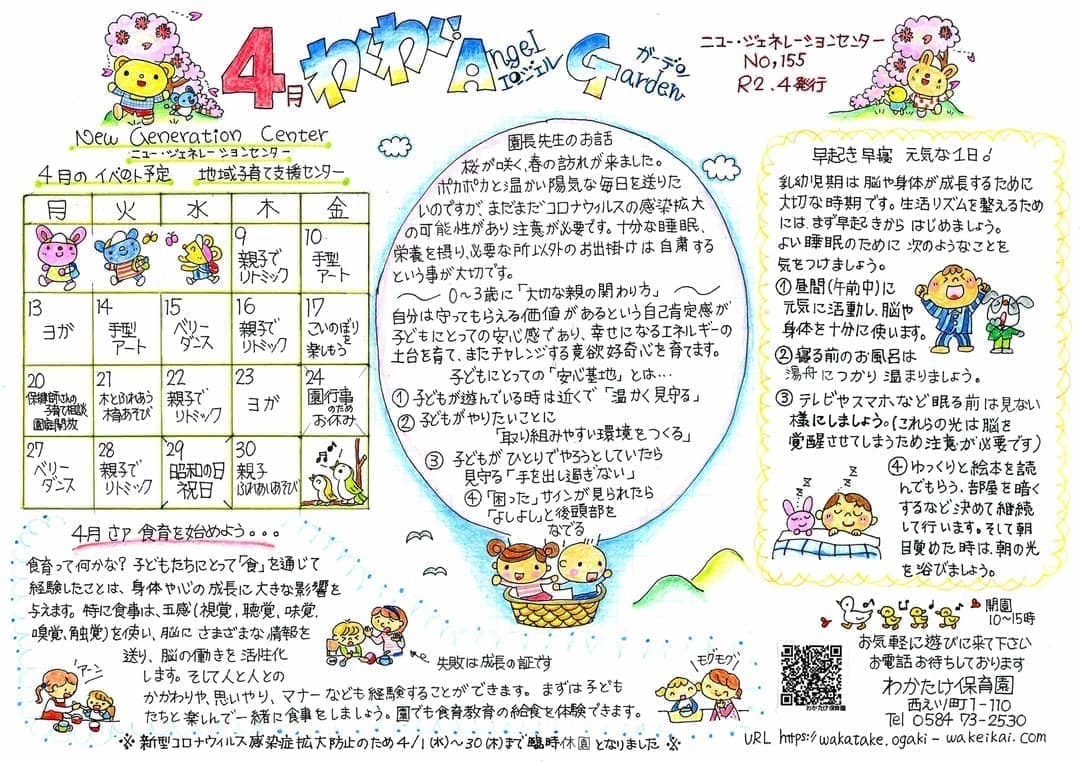 4月 わくわく Angel Garden
エンジェル ガーデン
ニュー・ジェネレーションセンター
NO,155
R2.4発行
New Generation Center
ニュー・ジェネレーションセンター
4月のイベント予定 地域子育て支援センター
月 火 水 木 金
9 親子でリトミック
10 手型アート
13 ヨガ
14 手型アート
15 ベリーダンス
16 親子でリトミック
17 こいのぼりを楽しもう
20 保健師さんの子育て相談 園庭開放
21 木とふれあう木育あそび
22 親子でリトミック
23 ヨガ
24 園行事のためお休み
27 ベリーダンス
28 親子でリトミック
29 昭和の日 祝日
30 親子ふれあいあそび
園長先生のお話
桜が咲く、春の訪れが来ました。
ポカポカと温かい陽気な毎日を送りた
いのですが、まだまだコロナウィルスの感染拡大
の可能性があり注意が必要です。十分な睡眠、
栄養を摂り、必要な所以外のお出掛けは自粛する
という事が大切です。
0〜3歳に「大切な親の関わり方」
自分は守ってもらえる価値があるという自己肯定感が
子どもにとっての安心感であり、幸せになるエネルギーの
土台を育て、またチャレンジする意欲好奇心を育てます。
子どもにとっての「安心基地」とは…
① 子どもが遊んでいる時は近くで「温かく見守る」
② 子どもがやりたいことに
「取り組みやすい環境をつくる」
③ 子どもがひとりでやろうとしていたら
見守る「手を出し過ぎない」
④「困った」サインが見られたら
「よしよし」と後頭部を
なでる
早起き早寝 元気な1日♪
乳幼児期は脳や身体が成長するために
大切な時期です。生活リズムを整えるため
には、まず早起きからはじめましょう。
よい睡眠のために次のようなことを
気をつけましょう。
①昼間(午前中)に
元気に活動し、脳や
身体を十分に使います。
②寝る前のお風呂は
湯舟につかり温まりましょう。
③テレビやスマホなど眠る前は見ない
様にしましょう。(これらの光は脳を
覚醒させてしまうため注意が必要です)
④ゆっくりと絵本を読
んでもらう、部屋を暗く
するなど決めて継続
して行います。そして朝
目覚めた時は、朝の光
を浴びましょう。
z z z
z z z
4月 さァ食育を始めよう。。。
食育って何かな？子どもたちにとって「食」を通じて
経験したことは、身体や心の成長に大きな影響を
与えます。特に食事は、五感(視覚、聴覚、味覚、
嗅覚、触覚)を使い、脳にさまざまな情報を
送り、脳の働きを活性化
します。そして人と人との
かかわりや、思いやり、マナーなども経験することができます。まずは子ども
たちと楽しんで一緒に食事をしましょう。園でも食育教育の給食を体験できます。
アーン
失敗は成長の証です
モグモグ
※新型コロナウィルス感染症拡大防止のため4/1(水)〜30(木)まで臨時休園となりました※
開園
10〜15時
お気軽に遊びに来て下さい
お電話お待ちしております
わかたけ保育園
わかたけ保育園
西え川町1-110
Tel 0584 73-2530
URL https://wakatake.ogaki-wakeikai.com